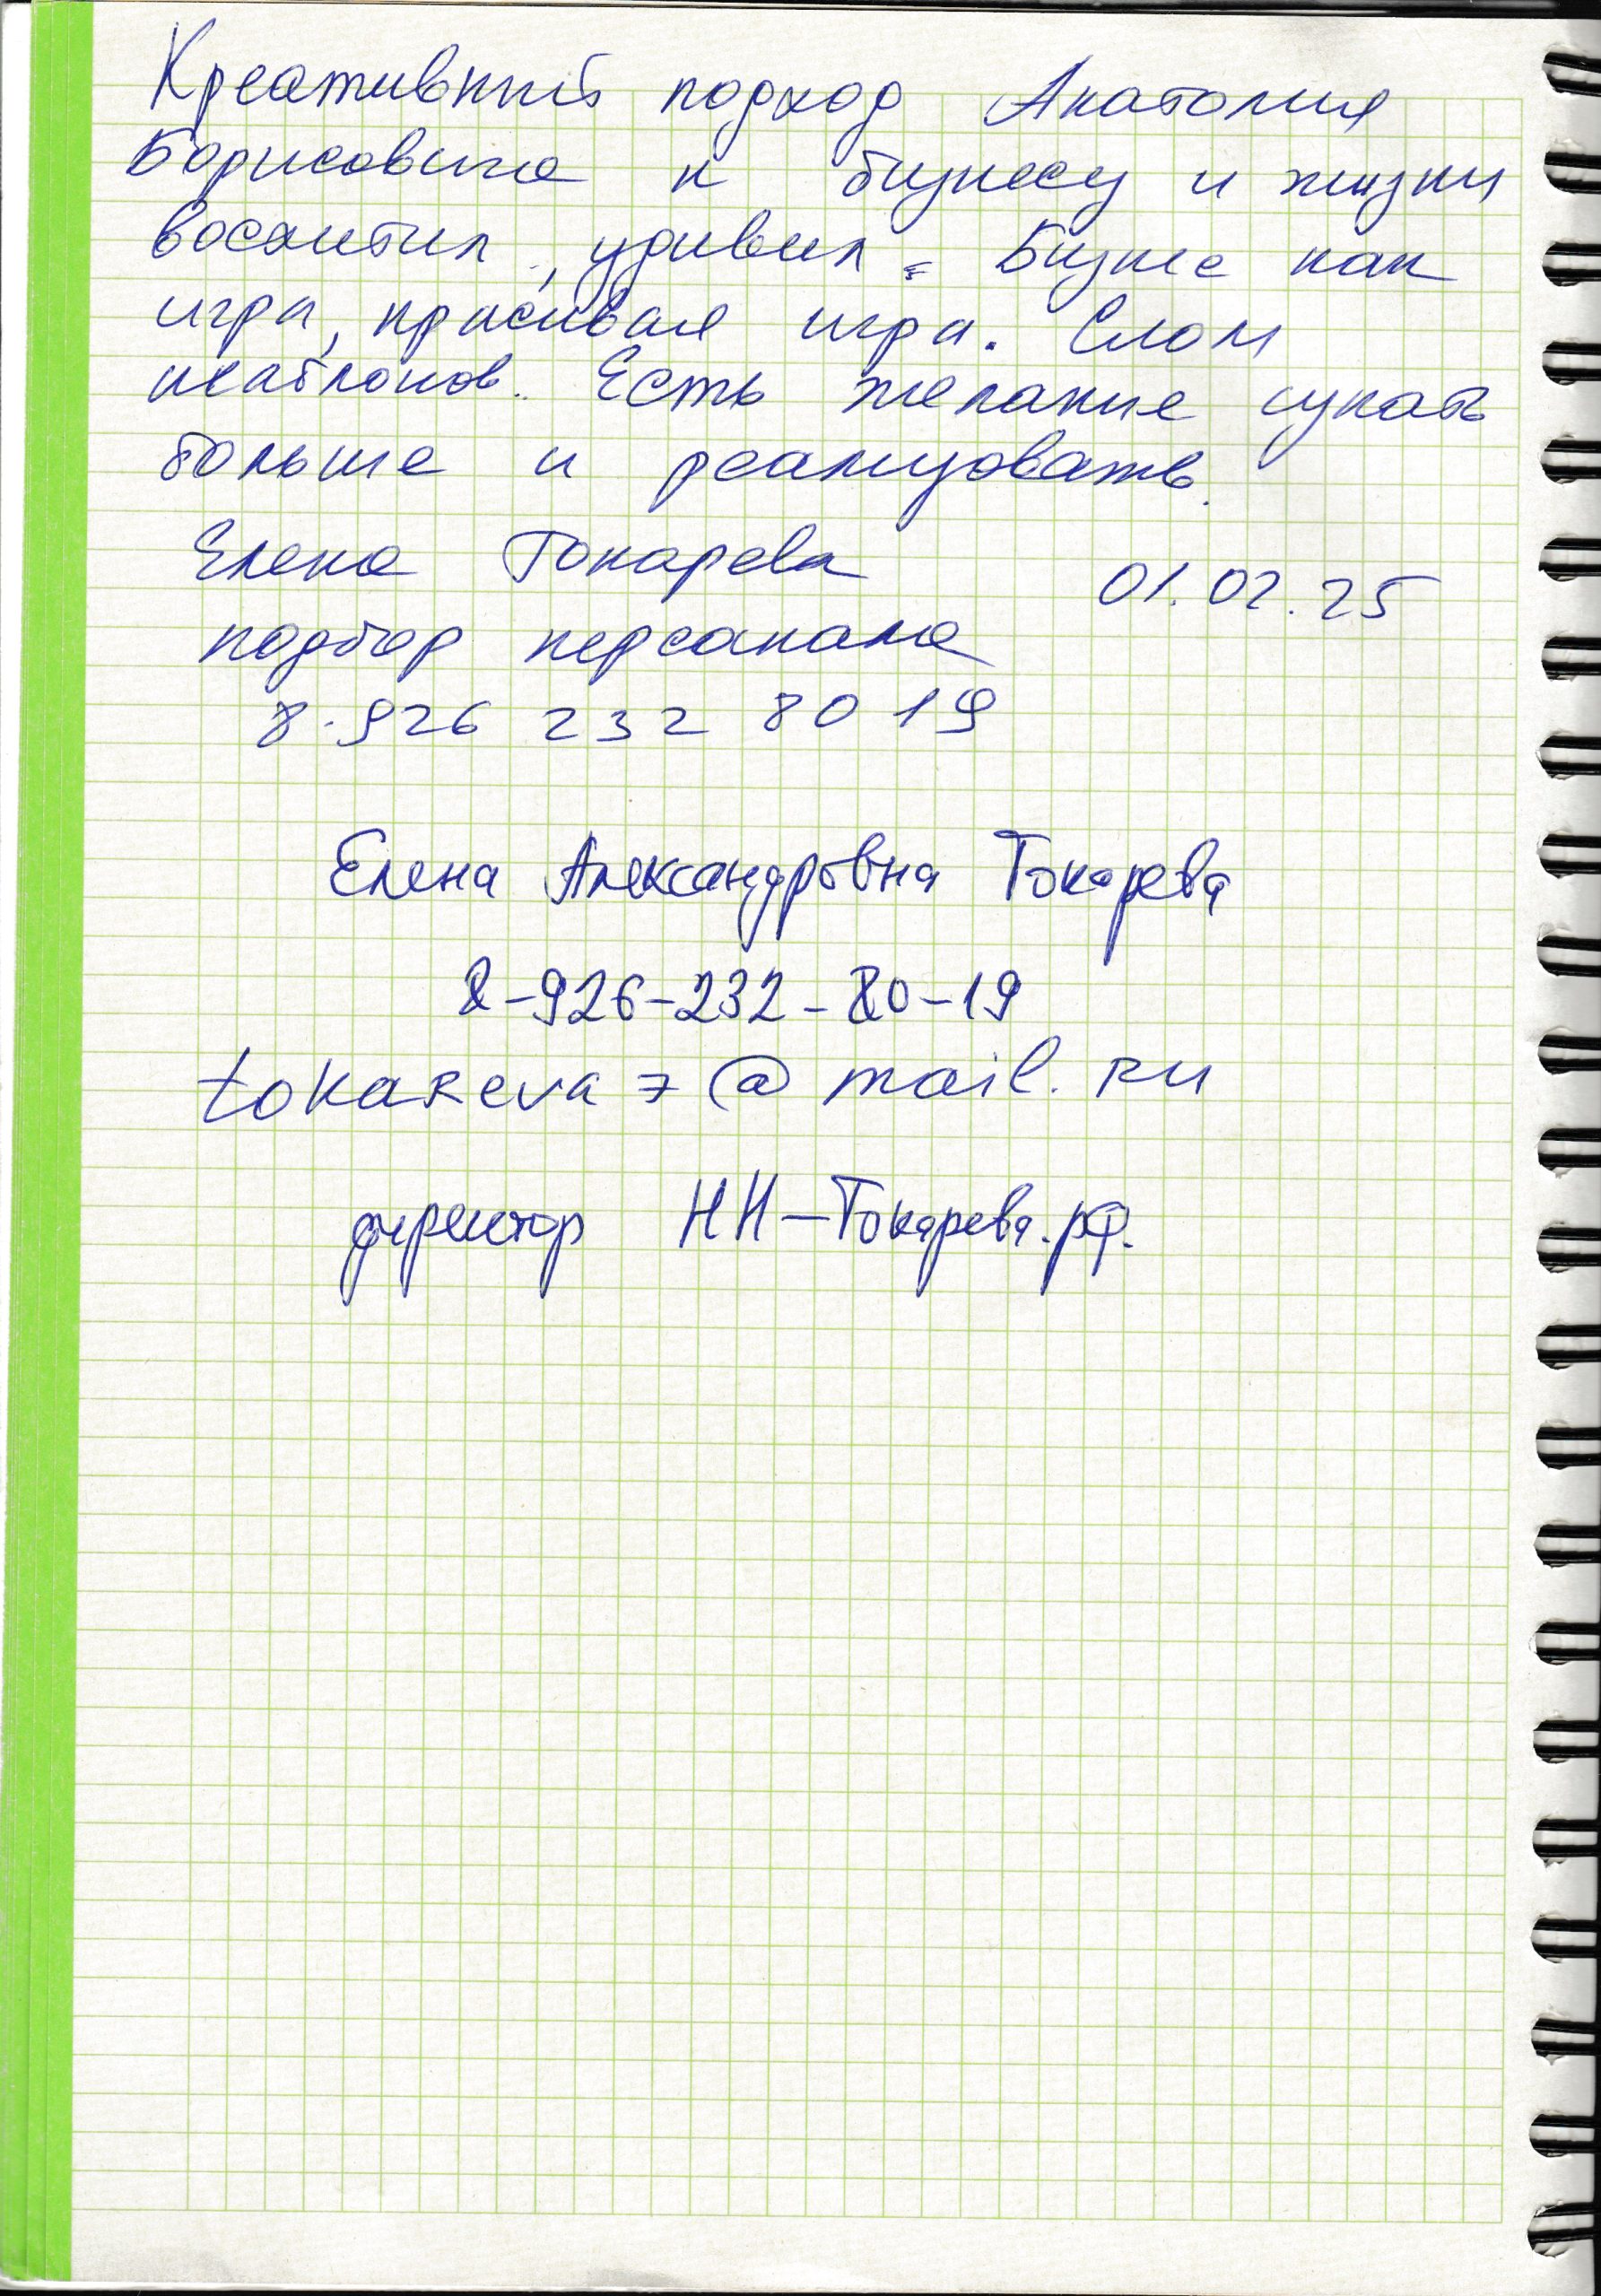 Креативный подход Анатолия
Борисовича к бизнесу и жизни
восхитил, удивил. Бизнес как
игра, красивая игра. Слом
шаблонов. Есть желание
больше и реализовать.
Елена Токарева 01.02.25
подбор персонала
8.926 232 80 19
Елена Александровна Токарева
8-926-232-80-19
tokareva7@mail.ru
директор НН-Токарева.рф.